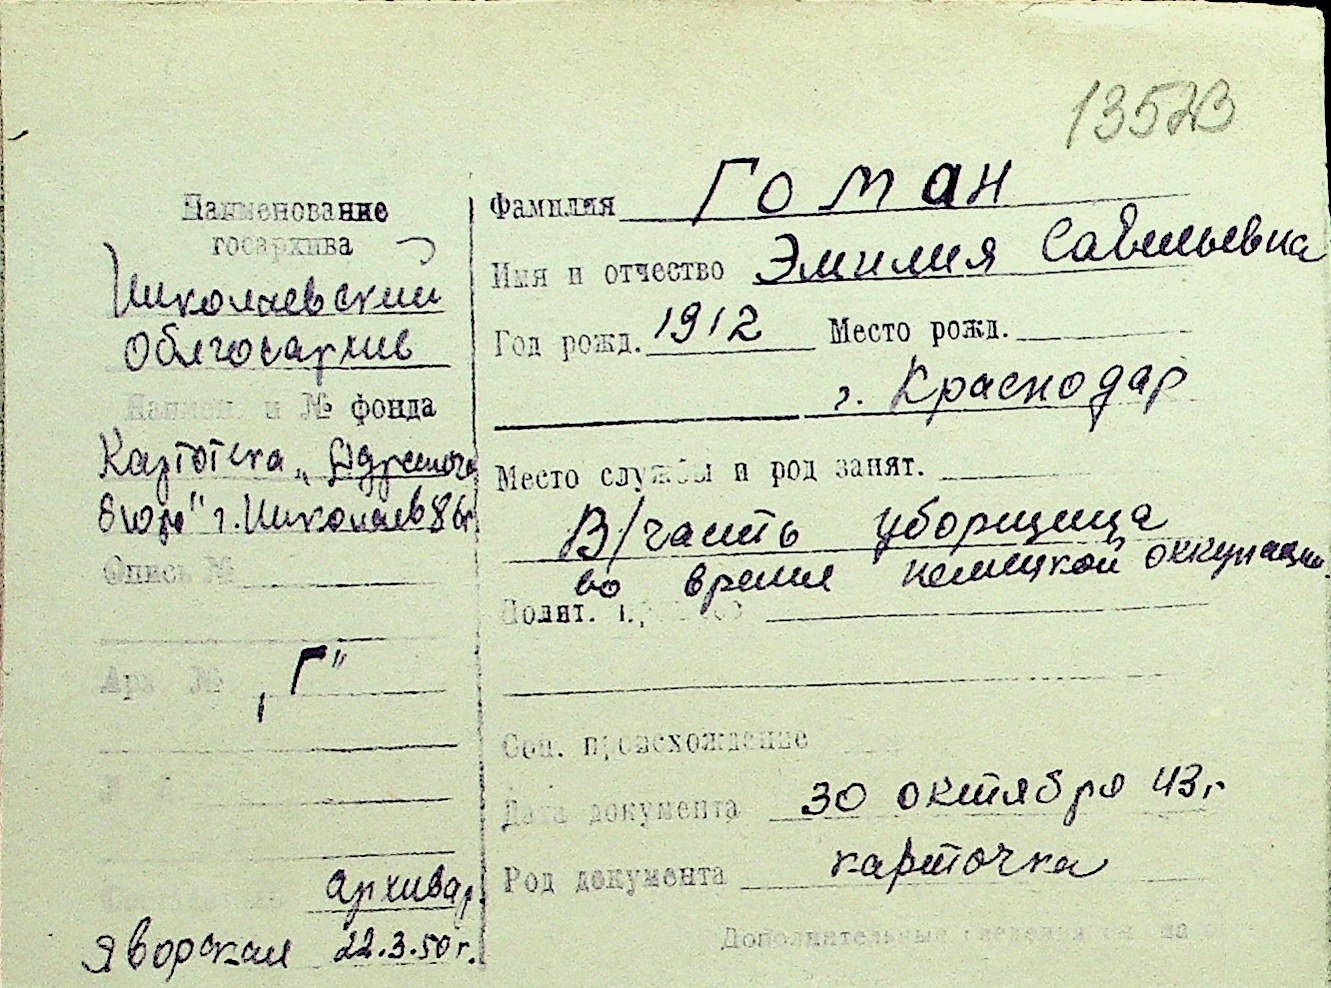 Наименование
госархива
Николаевский
Облгосархив
Наимен. и № фонда
Картотека „Адресного
бюро" г. Николаев
Опись №
Арх №
„Г"
Архивар.
Яворская 22.3.50 г.
Фамилия Гоман
Имя и отчество Эмилия Савельевна
Год рожд. 1912 Место рожд.
г. Краснодар
Место службы и род занят.
В/часть уборщица
во время немецкой оккупации
Полит.
Соц. происхождение
Дата документа 30 октября 43 г
Род документа карточка
Дополнительные сведения см. на